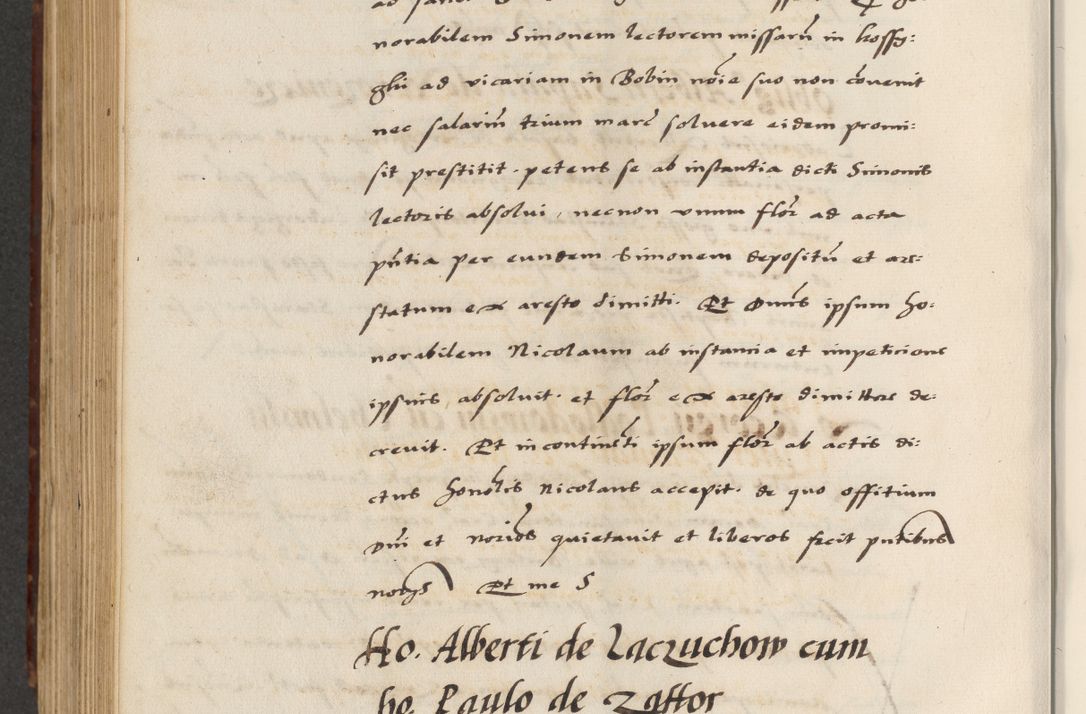 norabilem Simonem lectorem missarū in kossy:
glii ad vicariam in Bobin nōie suo non cōuenit
nec salariū trium marc̄ soluere eidem promi:
sit prestitit. petens se ab instantia dicti Simonis
lectoris absolui, necnon vnum flor̄ ad acta
pn̄tia per eundem Simonem depositū et are:
statum ex aresto dimitti. Et Dn̄s ipsum ho:
norabilem Nicolaum ab instancia et impeticione
ipsius absoluit. et flor̄ ex aresto dimittere de:
creuit. Et incontinēti ipsum flor̄ ab actis di:
ctus honōlis Nicolaus accepit. de quo offitium
Dn̄i et quietauit et liberos fecit pn̄tibus
Et me S
Ho. Alberti de Laczuchow cum
ho. Paulo de Zattor